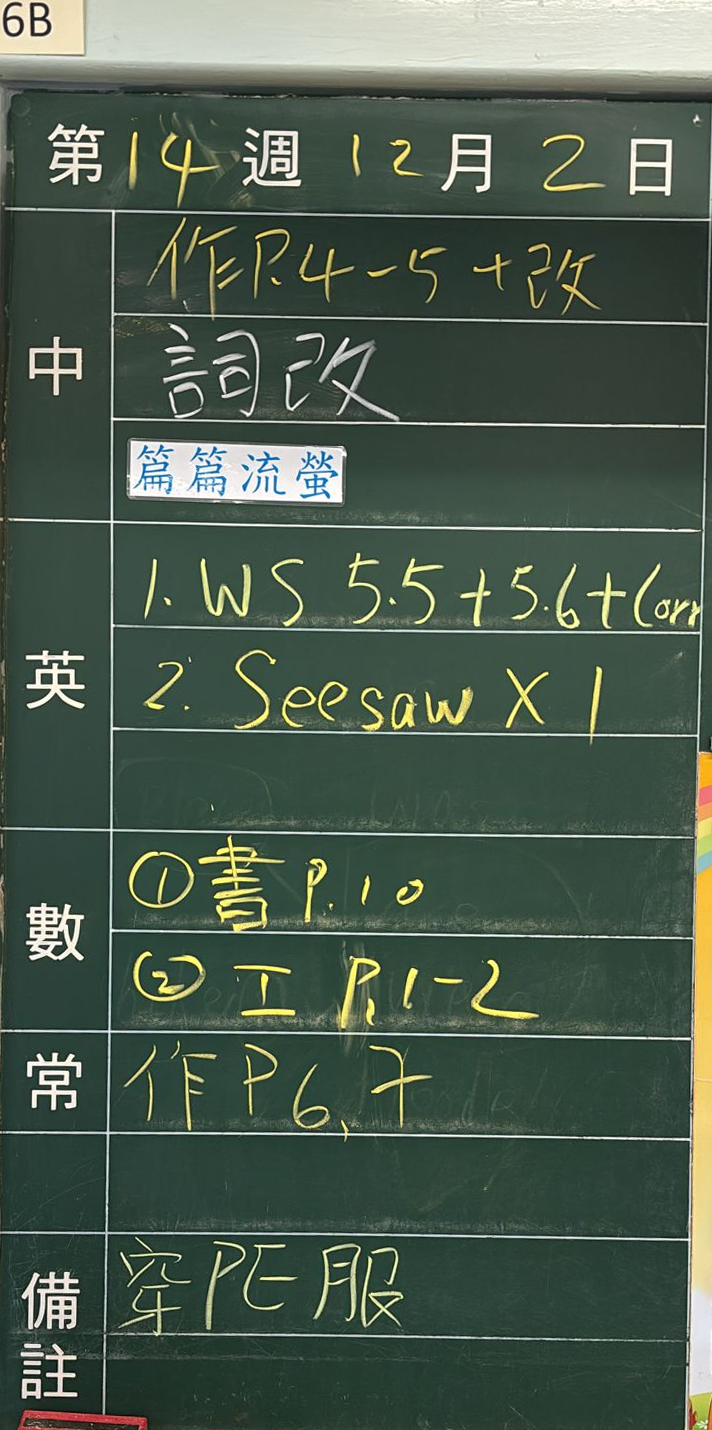 6B
第14週 12月2日
中
作P.4-5+改
詞改
篇篇流螢
英
1. WS 5.5+5.6+Corr
2. Seesaw X 1
數
① 書 P.10
② 工 P.1-2
常
作P6、7
備註
穿PE服